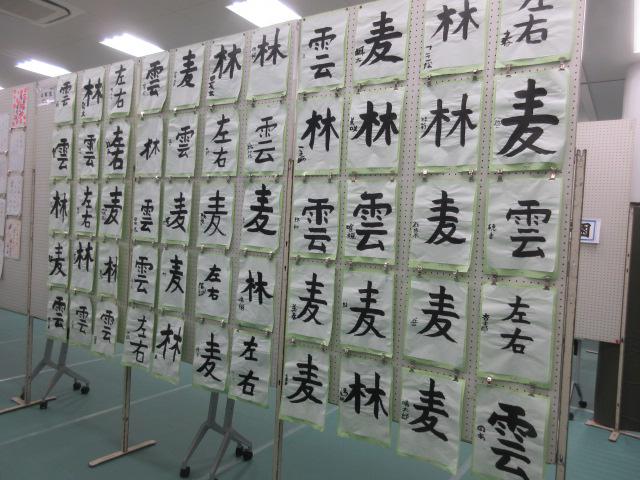 雲 林 左右 雲 麦 林 林 雲 麦 林 左右
雲 雲 左右 林 雲 左右 雲 林 林 林 麦
林 左右 麦 雲 麦 麦 麦 雲 雲 麦 雲
麦 林 林 雲 麦 左右 林 麦 麦 麦 左右
雲 雲 雲 左右 林 麦 左右 麦 林 麦 雲